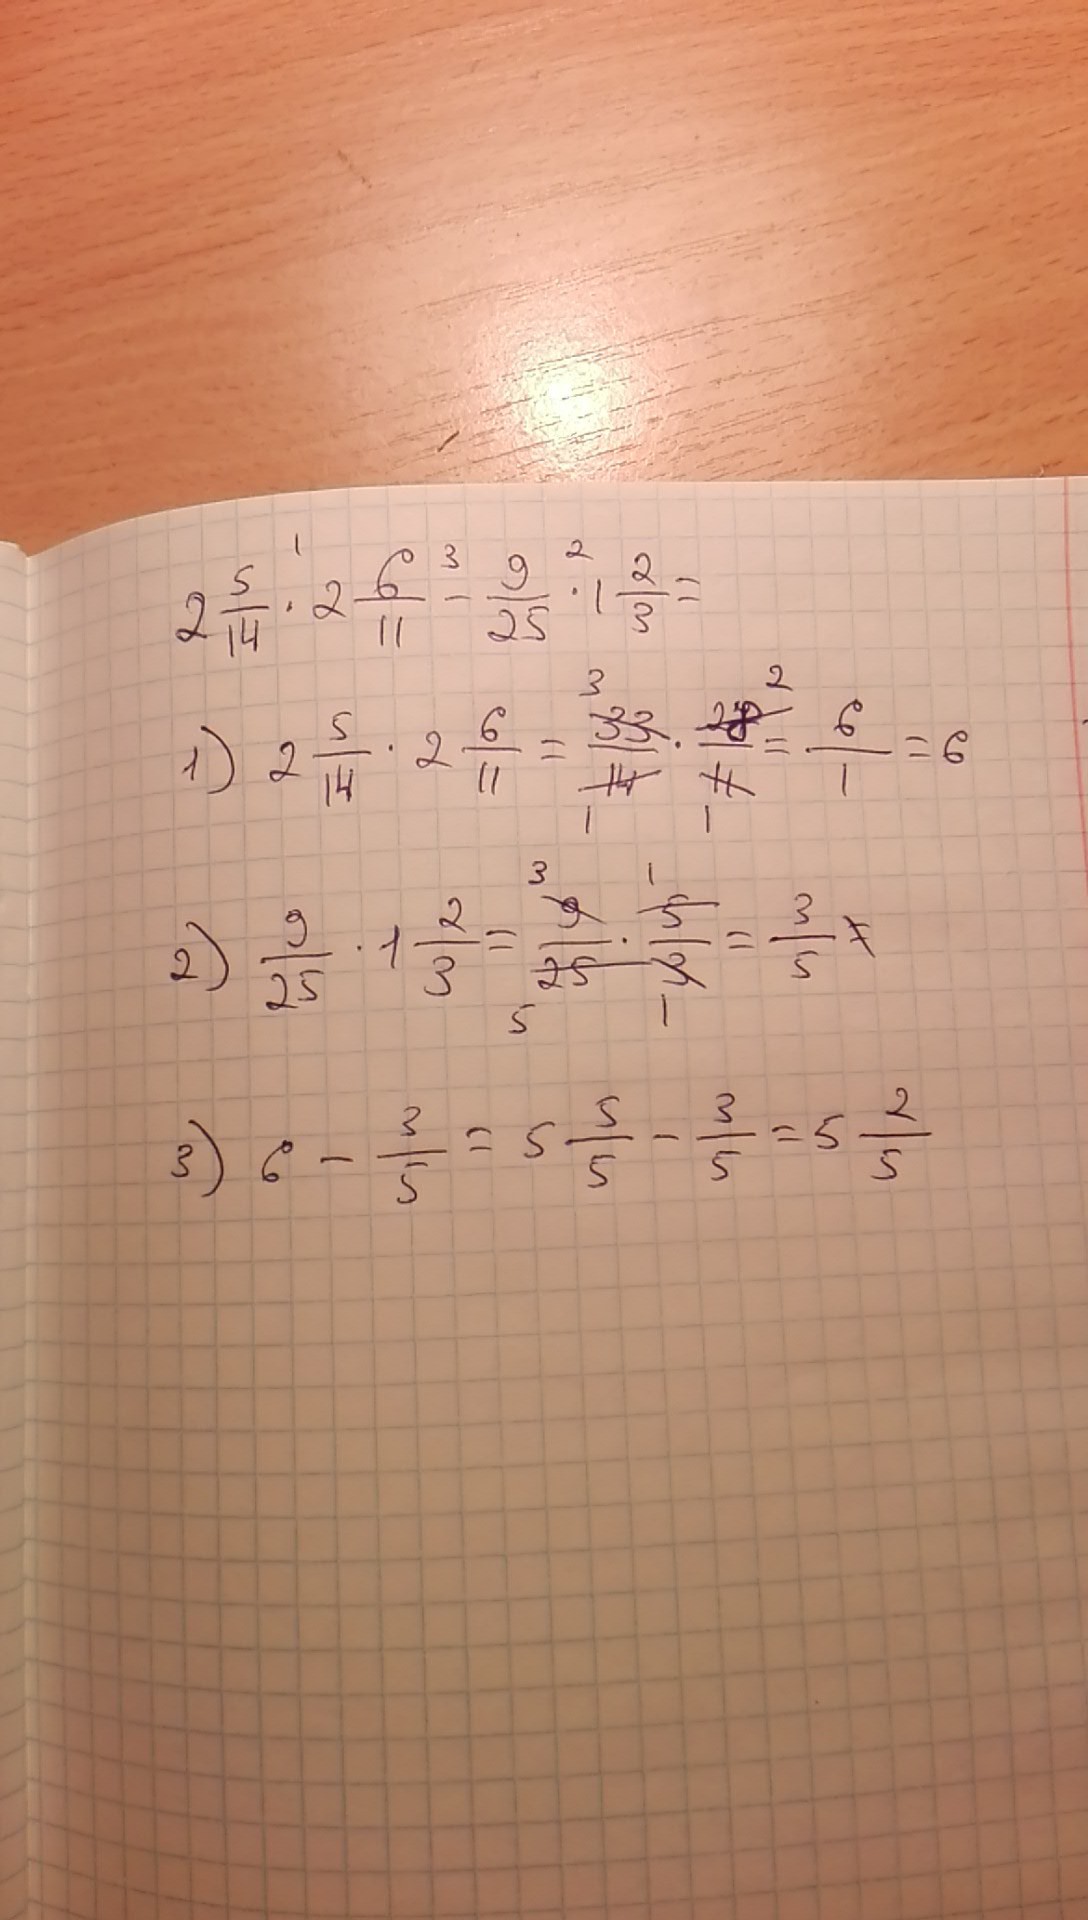 2 5/14 ·¹ 2 6/11 -³ 9/25 ·² 1 2/3 =
1) 2 5/14 · 2 6/11 = 33/14 · 28/11 = 6/1 = 6
2) 9/25 · 1 2/3 = 9/25 · 5/3 = 3/5
3) 6 - 3/5 = 5 5/5 - 3/5 = 5 2/5